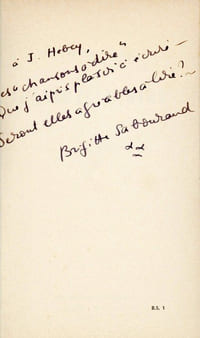 à J. Hebey,
ces "chansons à dire"
que j'ai pris plaisir à écrire —
Seront elles agréables à lire ? —
Brigitte Sabouraud
B.S. 1